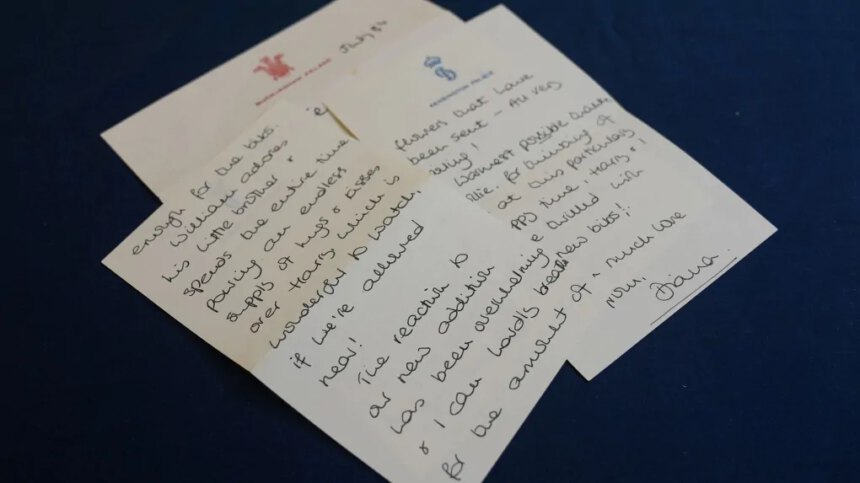 BUCKINGHAM PALACE
July 84
enough for the bibs.
William adores
his little brother &
spends the entire time
pouring an endless
supply of hugs & kisses
over Harry which is
wonderful to watch,
if we're allowed
near!
The reaction to
our new addition
has been overwhelming
& I can hardly breathe
for the amount of
KENSINGTON PALACE
flowers that have
been sent - all very
warmest possible thanks
for thinking of
at this particularly
time, Harry & I
thrilled with
new bibs!
much love
from,
Diana.